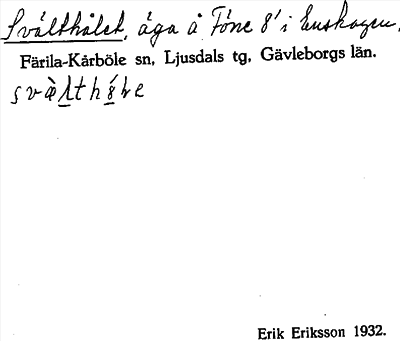 Svälthålet, äga å Föne 8' i Enskogen.
Färila-Kårböle sn, Ljusdals tg, Gävleborgs län.
Erik Eriksson 1932.